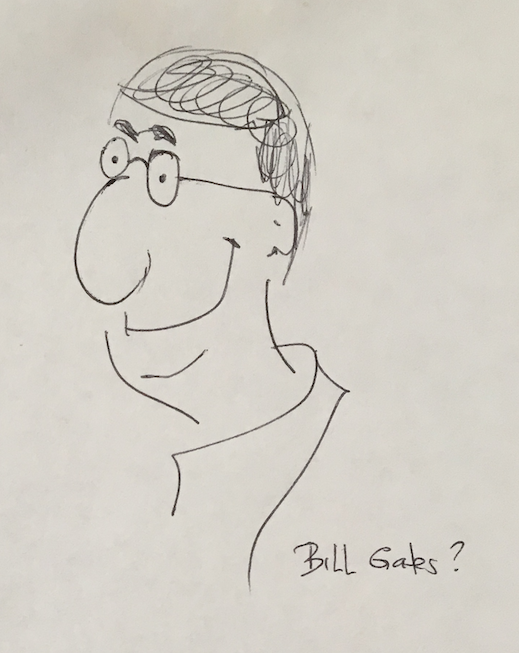 Bill Gates?